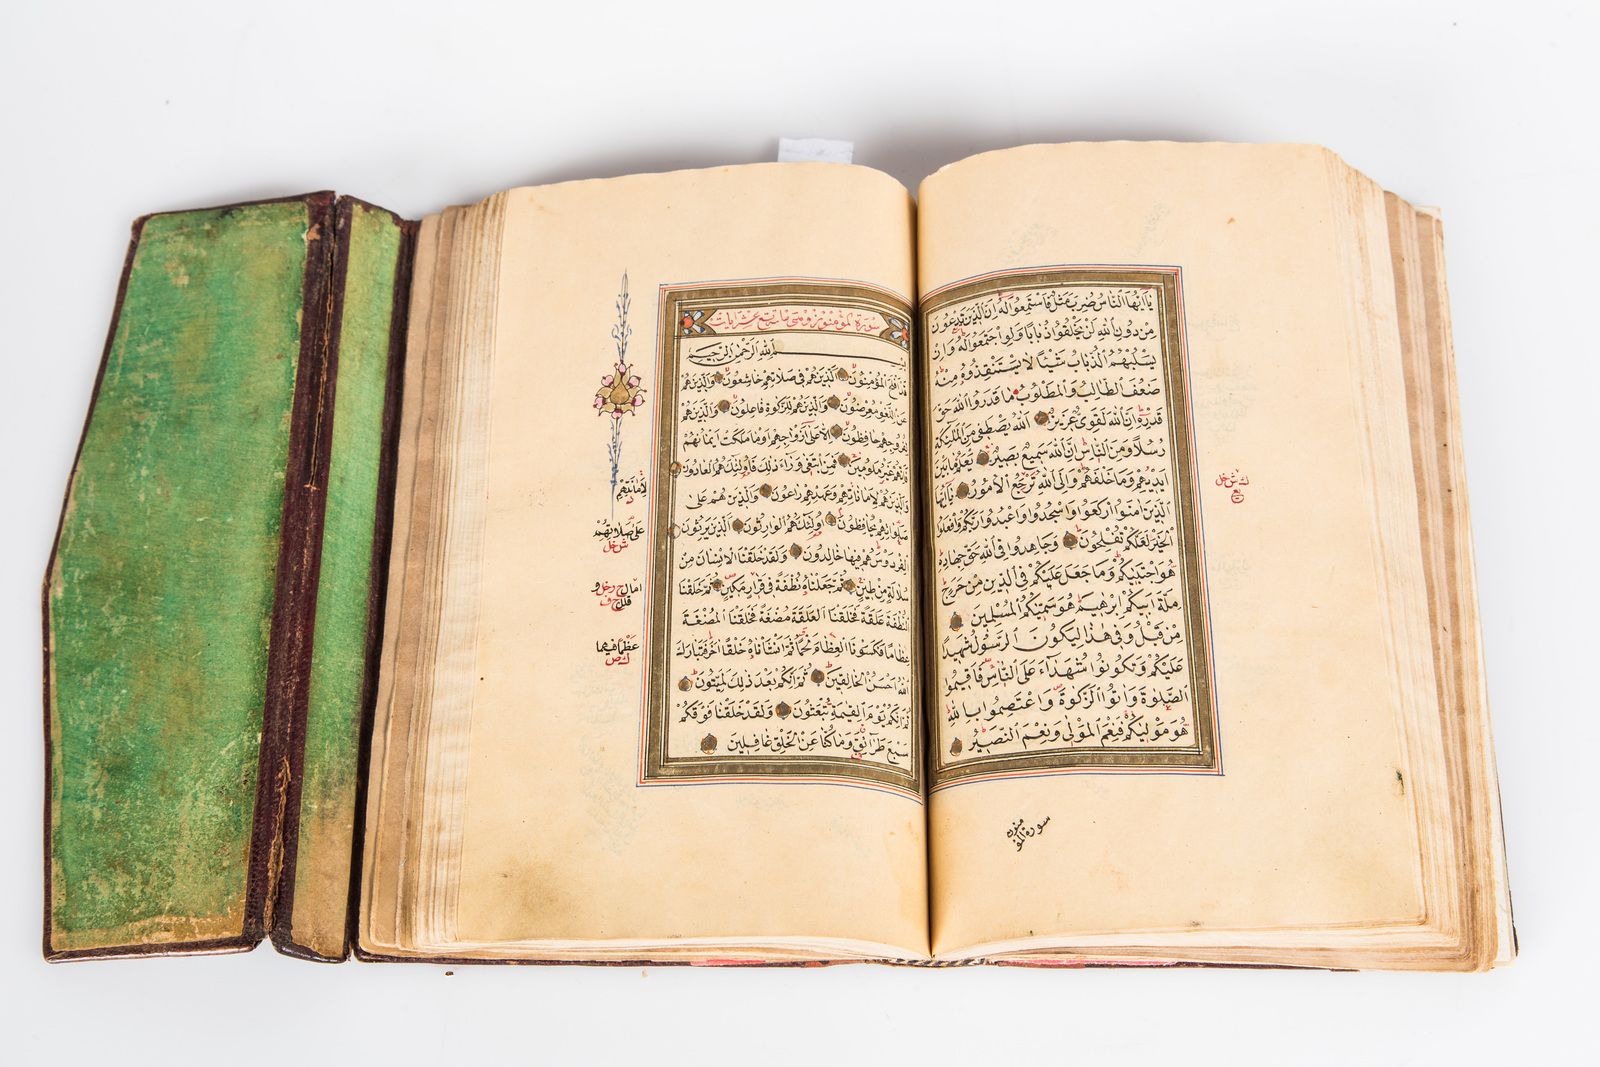 يا أيها الناس ضرب مثل فاستمعوا له ان الذين تدعون
من دون الله لن يخلقوا ذبابا ولو اجتمعوا له وان
يسلبهم الذباب شيئا لا يستنقذوه منه
ضعف الطالب والمطلوب ما قدروا الله حق
قدره ان الله لقوى عزيز الله يصطفى من الملئكة
رسلا ومن الناس ان الله سميع بصير يعلم ما بين
ايديهم وما خلفهم والى الله ترجع الأمور يا ايها
الذين امنوا اركعوا واسجدوا واعبدوا ربكم وافعلوا
الخير لعلكم تفلحون وجاهدوا فى الله حق جهاده
هو اجتبيكم وما جعل عليكم فى الدين من حرج
ملة ابيكم ابرهيم هو سميكم المسلمين
من قبل وفى هذا ليكون الرسول شهيدا
عليكم وتكونوا شهداء على الناس فاقيموا
الصلوة واتوا الزكوة واعتصموا بالله
هو موليكم فنعم المولى ونعم النصير
سورة المؤمنون
سورة المؤمنون وهى مائة وتسع عشر ايات
بسم الله الرحمن الرحيم
قد افلح المؤمنون الذين هم فى صلاتهم خاشعون والذين هم
عن اللغو معرضون والذين هم للزكوة فاعلون والذين هم
لفروجهم حافظون الا على ازواجهم او ما ملكت ايمانهم
فانهم غير ملومين فمن ابتغى وراء ذلك فاولئك هم العادون
والذين هم لاماناتهم وعهدهم راعون والذين هم على
صلواتهم يحافظون اولئك هم الوارثون الذين يرثون
الفردوس هم فيها خالدون ولقد خلقنا الانسان من
سلالة من طين ثم جعلناه نطفة فى قرار مكين ثم خلقنا
النطفة علقة فخلقنا العلقة مضغة فخلقنا المضغة
عظاما فكسونا العظام لحما ثم انشاناه خلقا اخر فتبارك
الله احسن الخالقين ثم انكم بعد ذلك لميتون
ثم انكم يوم القيمة تبعثون ولقد خلقنا فوقكم
سبع طرائق وما كنا عن الخلق غافلين
لأمانتهم
على صلاوتهم
عظما فيهما